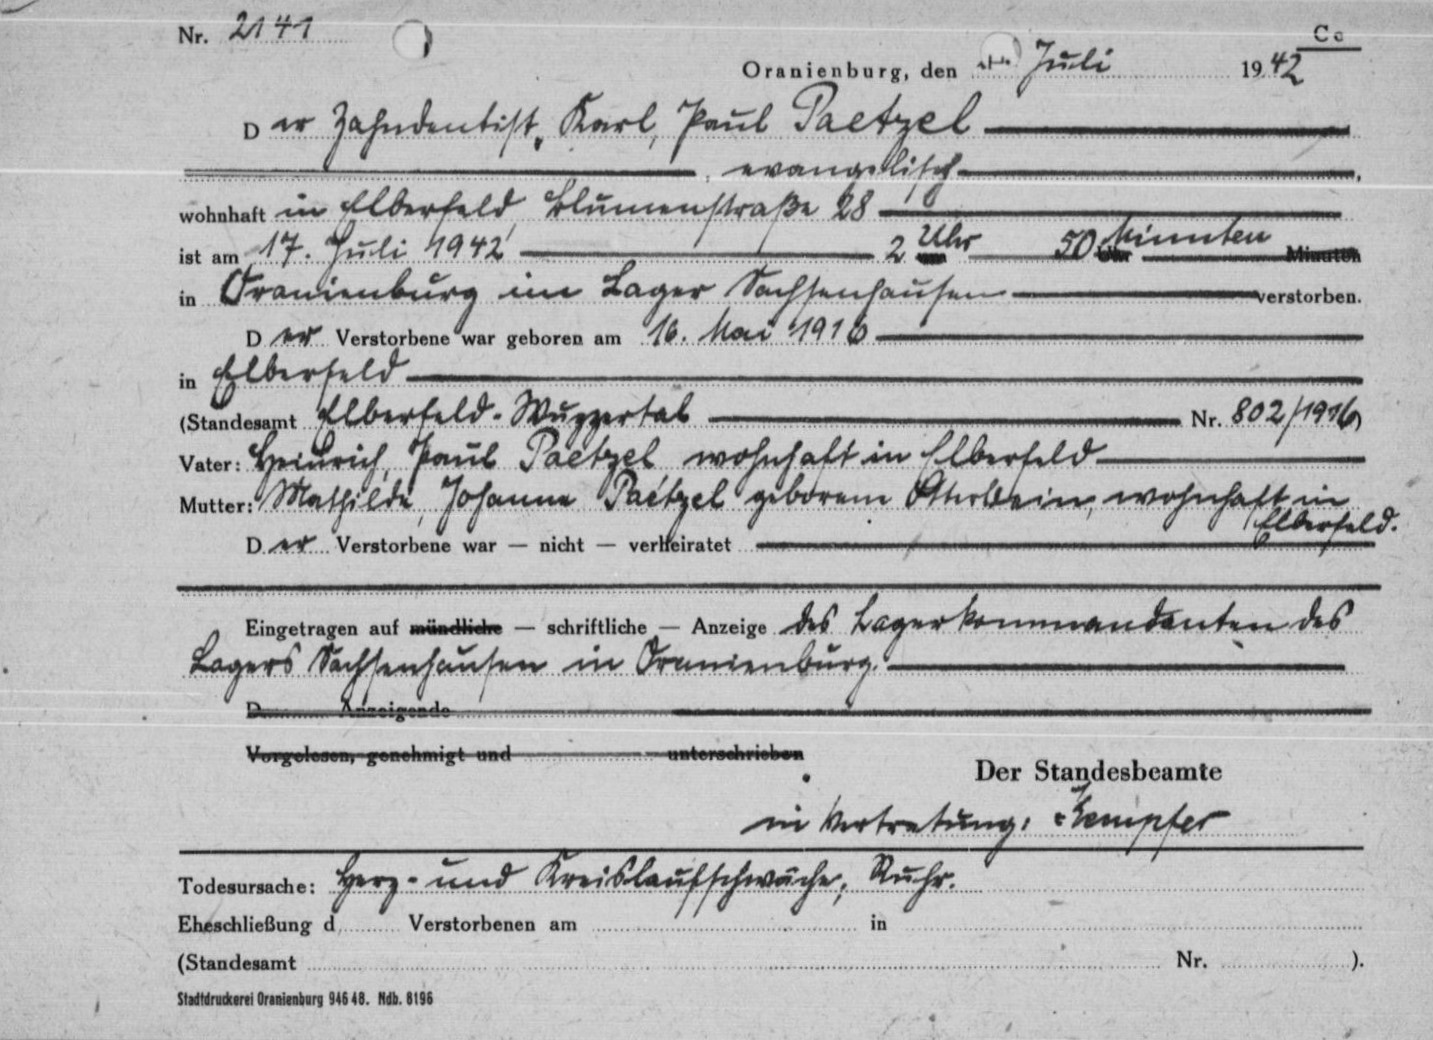 Nr. 2141
Cc
Oranienburg, den Juli 1942
Der Zahndentist, Karl, Paul Paetzel
, evangelisch ,
wohnhaft in Elberfeld, Blumenstraße 28
ist am 17. Juli 1942 2 Uhr 50 Minuten Uhr Minuten
in Oranienburg im Lager Sachsenhausen verstorben.
Der Verstorbene war geboren am 16. Mai 1916
in Elberfeld
(Standesamt Elberfeld-Wuppertal Nr. 802/1916)
Vater: Heinrich, Paul Paetzel wohnhaft in Elberfeld
Mutter: Mathilde, Johanne Paetzel geborene Otterbein, wohnhaft in
Elberfeld.
Der Verstorbene war — nicht — verheiratet
Eingetragen auf mündliche — schriftliche — Anzeige des Lagerkommandanten des
Lagers Sachsenhausen in Oranienburg.
D Anzeigende
Vorgelesen, genehmigt und unterschrieben
Der Standesbeamte
in Vertretung: Kempfer
Todesursache: Herz- und Kreislaufschwäche, Ruhr.
Eheschließung d Verstorbenen am in
(Standesamt Nr. ).
Stadtdruckerei Oranienburg 946 48. Ndb. 8196